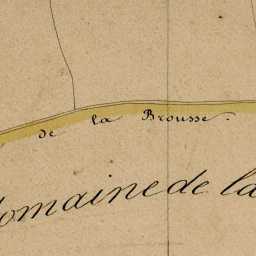 de la Brousse.
domaine de la